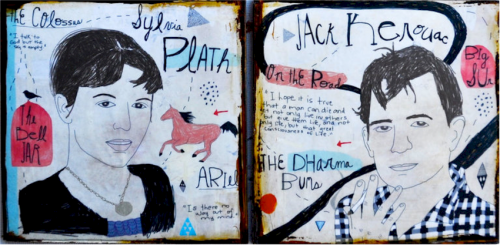 THE COLOSSUS
Sylvia
PLATH
"I talk to
God but the
sky is empty."
The
Bell
JAR
ARiel
"Is there no
way out of
my mind
JACK Kerouac
On the Road
Big
Sur
"I hope it is true
that a man can die and
yet not only live in others
but give them life, and not
only life, but that great
consciousness of life."
THE DHarma
Bums